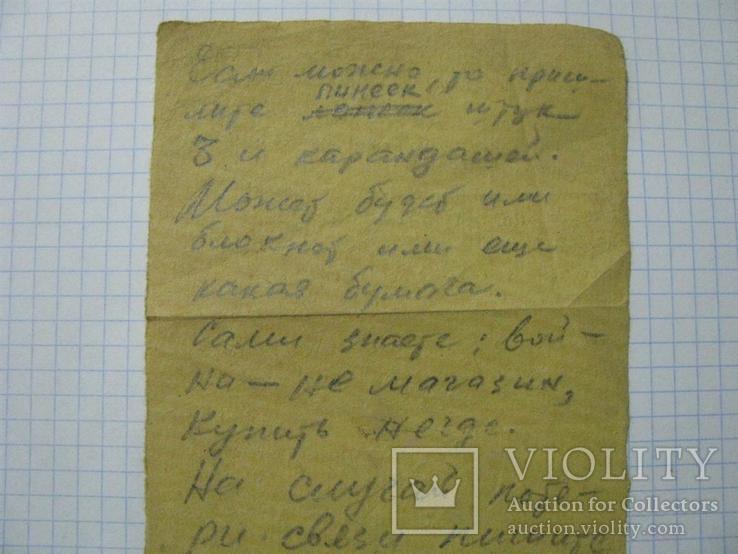 Если можно, то приш-
лите пинеек штук
3 и карандашей.
Может будет или
блокнот или еще
какая бумага.
Сами знаете: вой-
на — не магазин,
Купить негде.
На случай поте-
ри связи
VIOLITY
Auction for Collectors
auction.violity.com